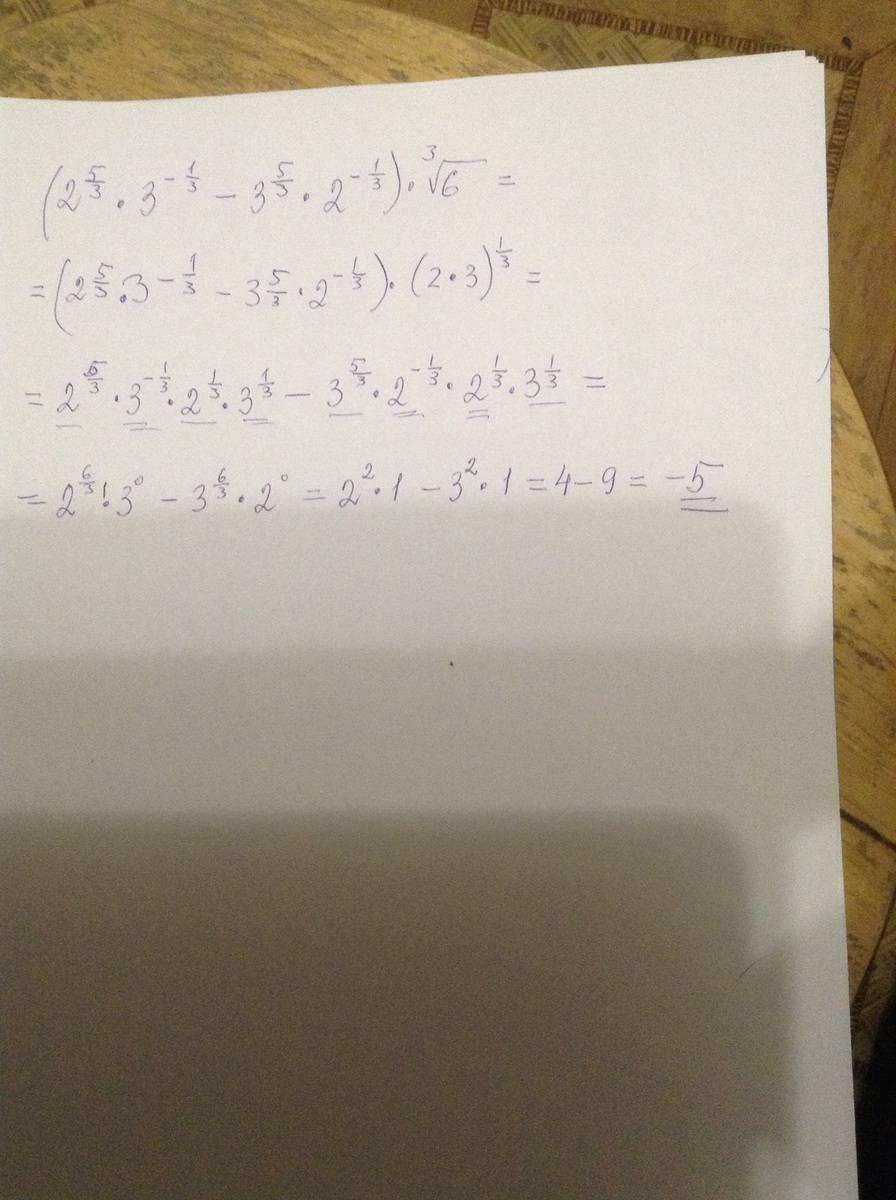 (2^(5/3) · 3^(-1/3) - 3^(5/3) · 2^(-1/3)) · ∛6 =
= (2^(5/3) · 3^(-1/3) - 3^(5/3) · 2^(-1/3)) · (2·3)^(1/3) =
= 2^(5/3) · 3^(-1/3) · 2^(1/3) · 3^(1/3) - 3^(5/3) · 2^(-1/3) · 2^(1/3) · 3^(1/3) =
= 2^(6/3) · 3^0 - 3^(6/3) · 2^0 = 2^2 · 1 - 3^2 · 1 = 4 - 9 = -5